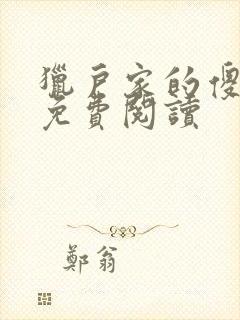 獵戶家的傻
免費閱讀
鄭翁